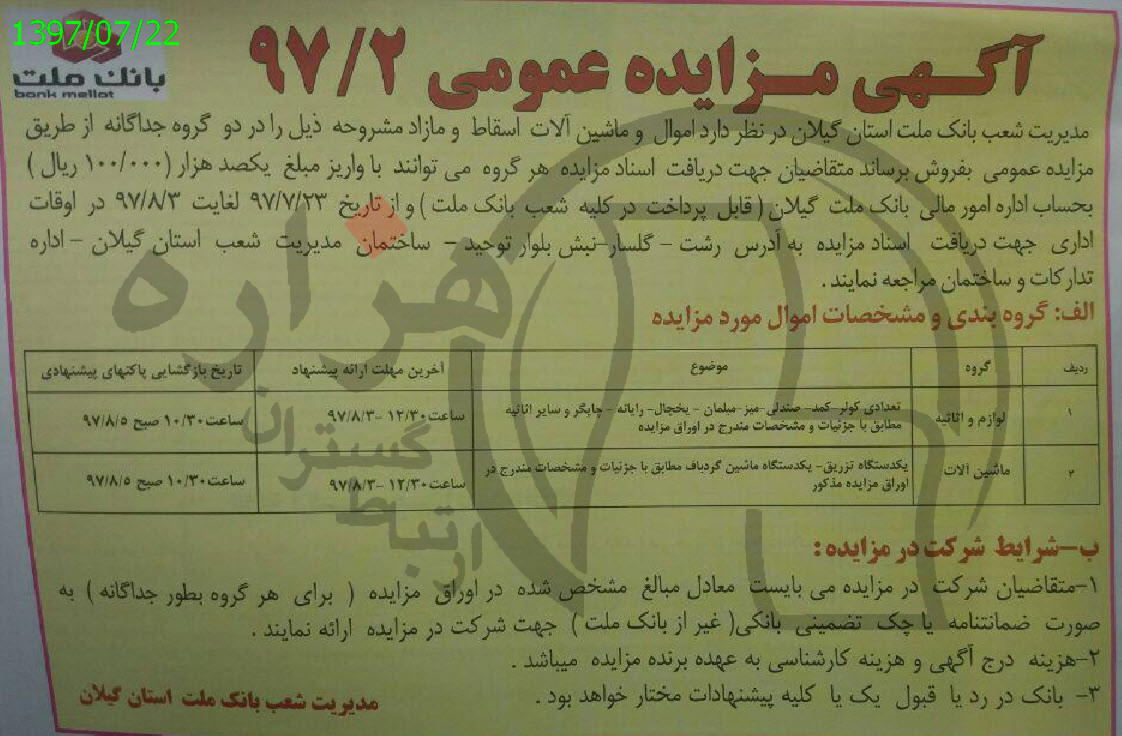 1397/07/22
بانک ملت
bank mellat
آگهی مزایده عمومی ۹۷/۲
مدیریت شعب بانک ملت استان گیلان در نظر دارد اموال و ماشین آلات اسقاط و مازاد مشروحه ذیل را در دو گروه جداگانه از طریق
مزایده عمومی بفروش برساند متقاضیان جهت دریافت اسناد مزایده هر گروه می توانند با واریز مبلغ یکصد هزار (۱۰۰/۰۰۰ ریال )
بحساب اداره امور مالی بانک ملت گیلان ( قابل پرداخت در کلیه شعب بانک ملت ) و از تاریخ ۹۷/۷/۲۳ لغایت ۹۷/۸/۳ در اوقات
اداری جهت دریافت اسناد مزایده به آدرس رشت – گلسار–نبش بلوار توحید – ساختمان مدیریت شعب استان گیلان – اداره
تدارکات و ساختمان مراجعه نمایند .
الف: گروه بندی و مشخصات اموال مورد مزایده
ردیف گروه موضوع آخرین مهلت ارائه پیشنهاد تاریخ بازگشایی پاکتهای پیشنهادی
۱ لوازم و اثاثیه تعدادی کولر-کمد- صندلی-میز-مبلمان - یخچال- رایانه - چاپگر و سایر اثاثیه
مطابق با جزئیات و مشخصات مندرج در اوراق مزایده ساعت۱۲/۳۰ -۹۷/۸/۳ ساعت۱۰/۳۰ صبح ۹۷/۸/۵
۲ ماشین آلات یکدستگاه تزریق- یکدستگاه ماشین گردباف مطابق با جزئیات و مشخصات مندرج در
اوراق مزایده مذکور ساعت۱۲/۳۰ -۹۷/۸/۳ ساعت۱۰/۳۰ صبح ۹۷/۸/۵
ب–شرایط شرکت در مزایده :
۱–متقاضیان شرکت در مزایده می بایست معادل مبالغ مشخص شده در اوراق مزایده ( برای هر گروه بطور جداگانه ) به
صورت ضمانتنامه یا چک تضمینی بانکی( غیر از بانک ملت ) جهت شرکت در مزایده ارائه نمایند .
۲–هزینه درج آگهی و هزینه کارشناسی به عهده برنده مزایده میباشد .
۳– بانک در رد یا قبول یک یا کلیه پیشنهادات مختار خواهد بود .
مدیریت شعب بانک ملت استان گیلان
هزاره
گستران
ارتباط